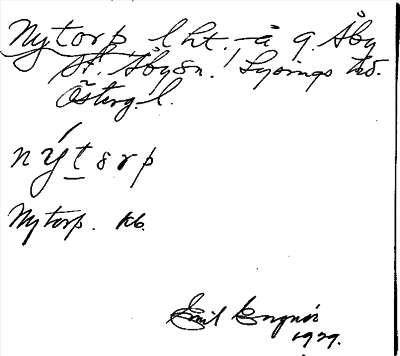 Nytorp lht. å g. Åby
st. Åby sn. Lysings hd.
Österg. l.
nýtorp
Nytorp. kb.
Emil
1929.